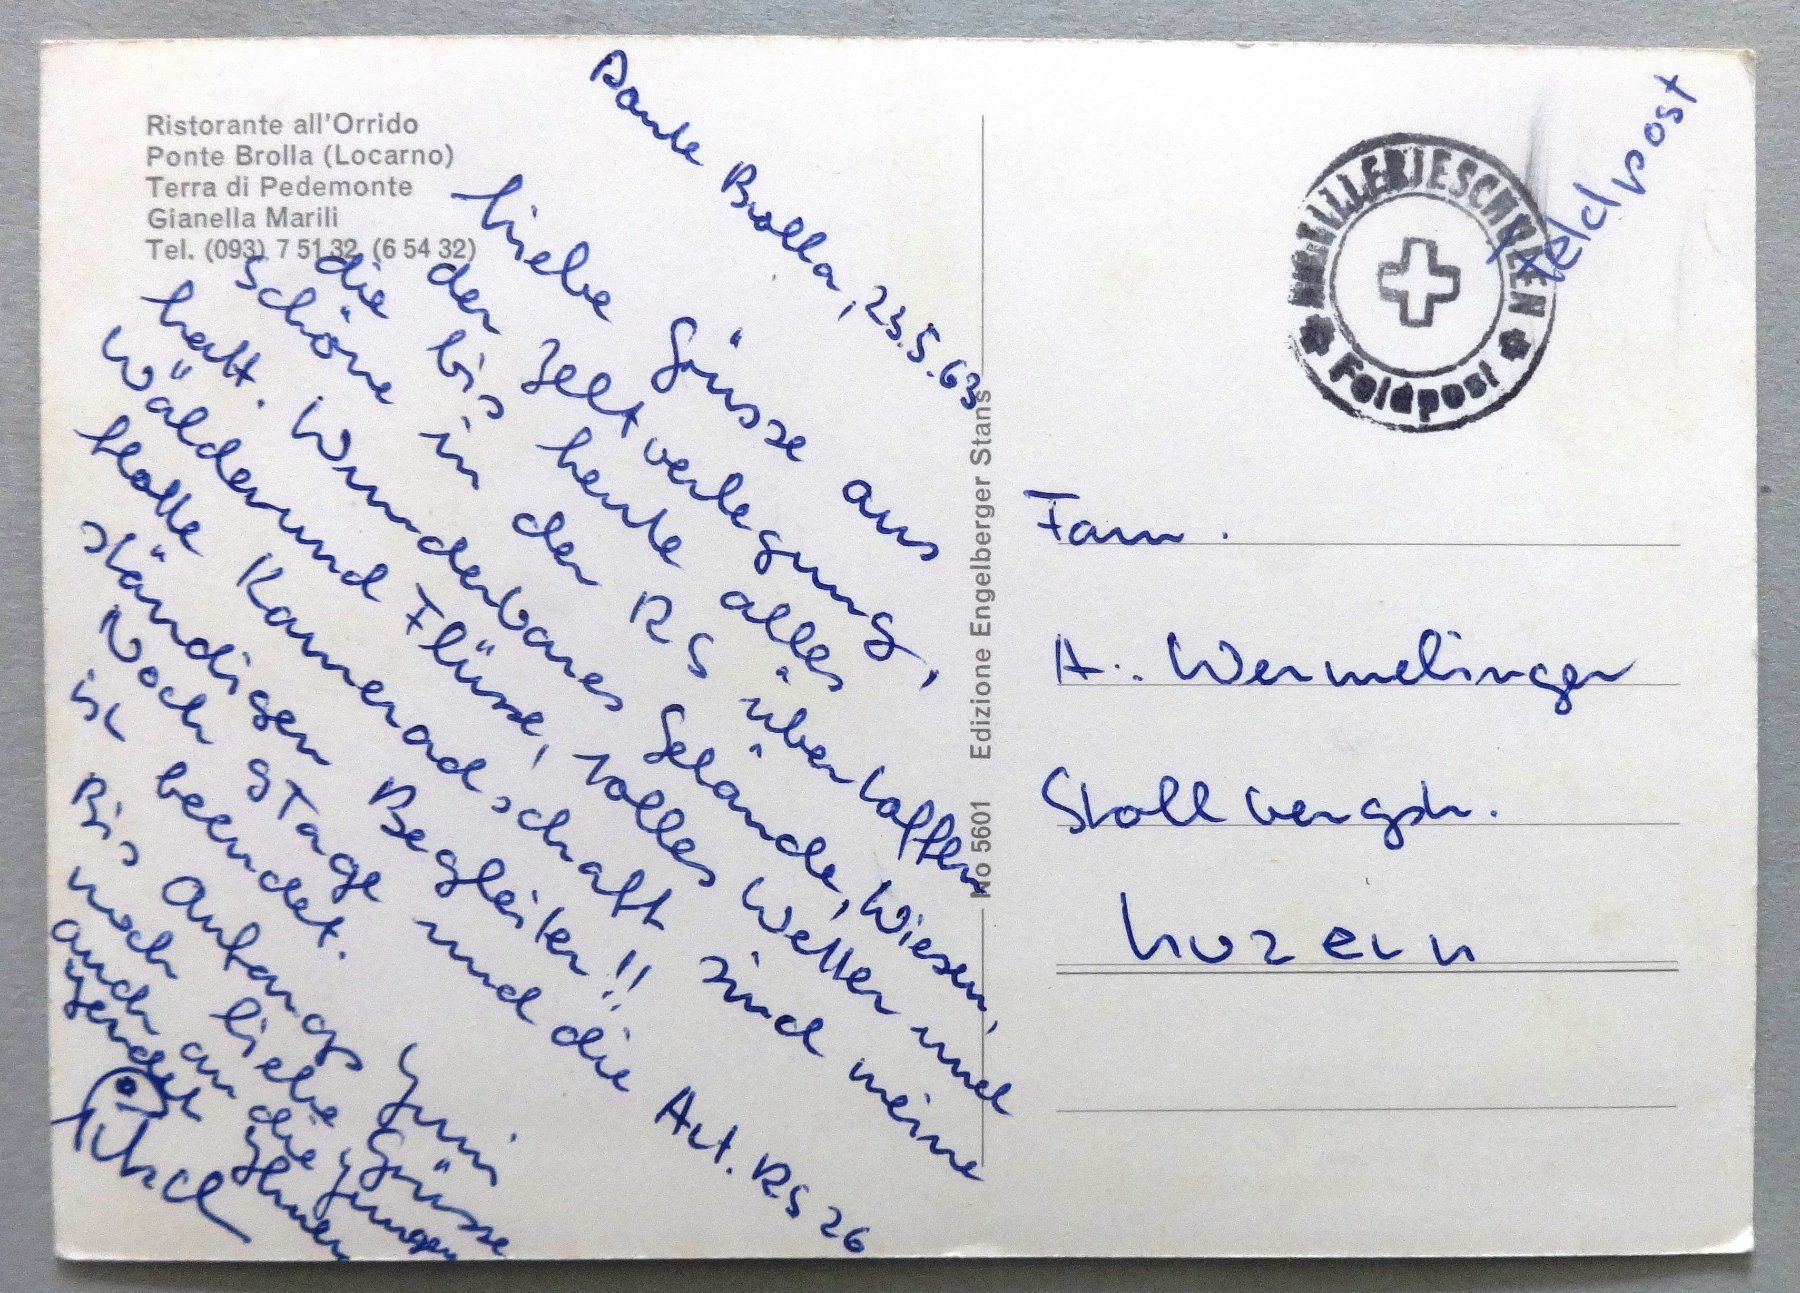 Ristorante all'Orrido
Ponte Brolla (Locarno)
Terra di Pedemonte
Gianella Marili
Tel. (093) 7 51 32 (6 54 32)
Ponte Brolla, 23.5.63
Liebe Grüsse aus
der Zeltverlegung,
die bis heute alles
schöne in der RS übertoffen
hatt. Wunderbares Gelände, Wiesen,
Wälder und Flüsse, tolles Wetter und
flotte Kameradschaft sind meine
ständigen Begleiter!!
Noch 9 Tage und die Art. RS 26
ist beendet.
Bis Anfangs Juni
noch liebe Grüsse
auch an die Jungen
Ihnen
No 5601 Edizione Engelberger Stans
ARTILLERIESCHULEN
Feldpost
Feldpost
Fam.
A. Wermelinger
Stollbergstr.
Luzern